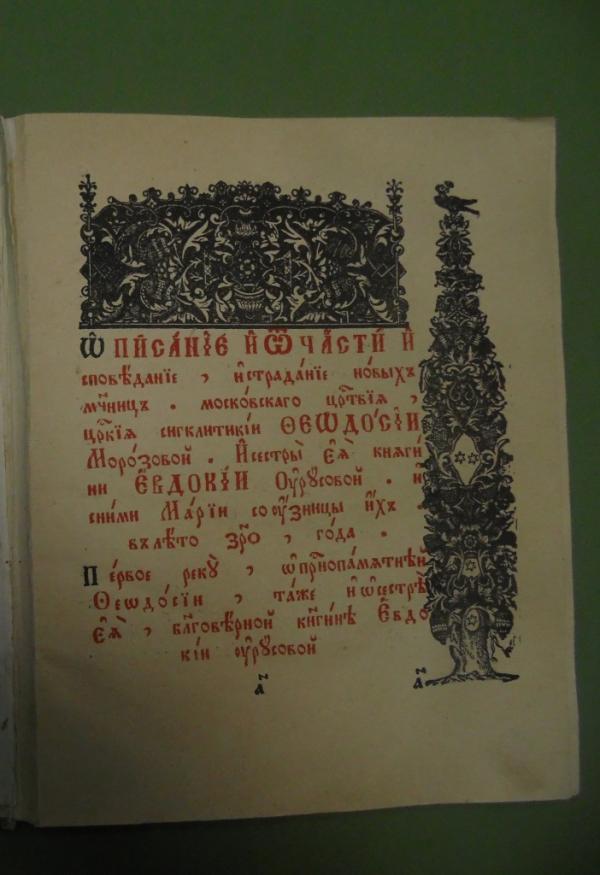 Ѡписа́нїе и҆ ѿча́сти и҆
сповѣ́данїе , и҆страда́нїе но́выхъ
мч҃ницъ . моско́вскаго црⷭ҇твїѧ ,
црⷭ҇кїѧ сигклитикі́и ѲЕѠДО́СІИ
Моро́зовой . И҆сестры̀ Е҆Ѧ̀ кнѧги́
ни Е҆ВДОКІ́И Оу҆ру́совой . и҆
сни́ми Марі́и соу́зницы и҆́хъ .
въ лѣ́то ЗРО го́да .
Пе́рвое рекꙋ̀ , ѡ҆ прⷭ҇нопа́мѧтнѣй
Ѳеѡдо́сїи , та́же и҆ ѡ҆ сестрѣ̀
Е҆Ѧ̀ , бл҃говѣ́рной кнг҃и́нѣ Е҆вдо
кі́и оу҆ру́совой
а҃
а҃